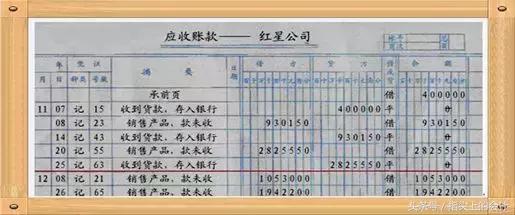 应收账款——红星公司
年 凭证 摘要 日期 借方 贷方 借或贷 余额
月 日 种类 号数
承前页 借 400000
11 07 记 15 收到货款，存入银行 400000 平 0
08 记 23 销售产品，款未收 930150 借 930150
14 记 43 收到货款，存入银行 930150 平 0
20 记 55 销售产品，款未收 2825550 借 2825550
25 记 63 收到货款，存入银行 2825550 平 0
12 08 记 21 销售产品，款未收 1053000 借 1053000
26 记 65 销售产品，款未收 1942200 借 1942200
头条号/指尖上的会计